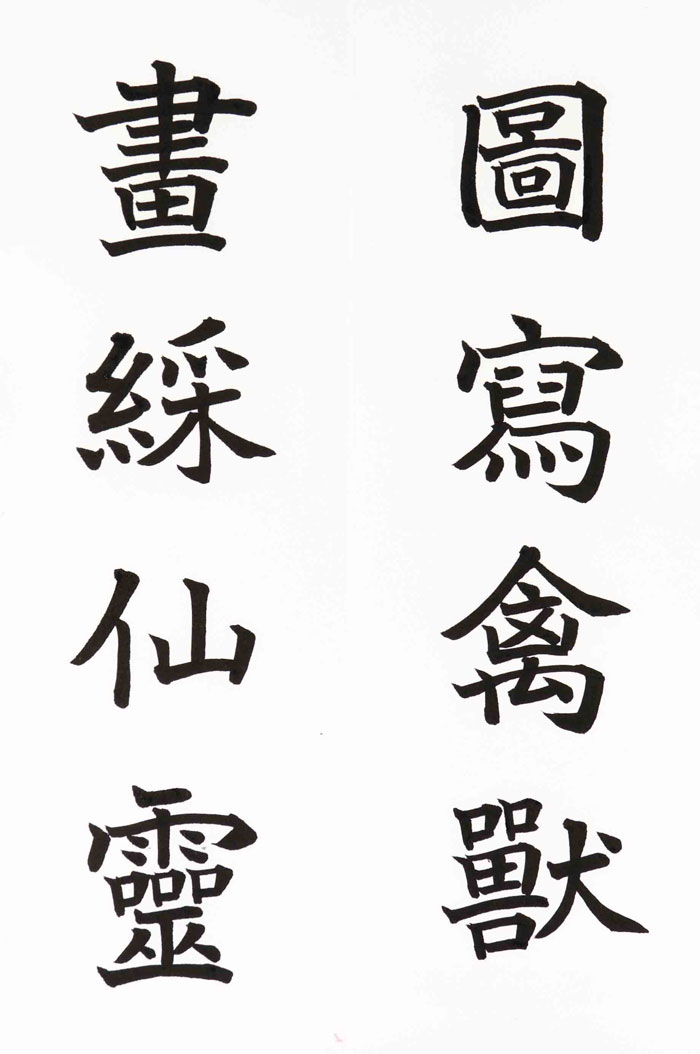 圖寫禽獸
畫綵仙靈